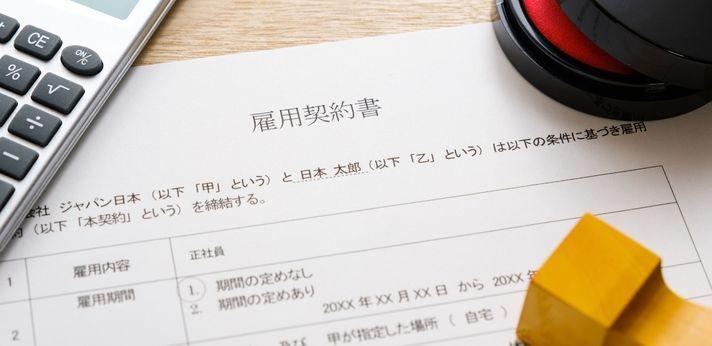 CE
ON/C
%
√
÷
−
雇用契約書
会社 ジャパン日本（以下「甲」という）と 日本 太郎（以下「乙」という）は以下の条件に基づき雇用
約（以下「本契約」という）を締結する。
1 雇用内容 正社員
2 雇用期間
1. 期間の定めなし
2. 期間の定めあり
20XX 年 XX 月 XX 日 から 20XX 年
及び 甲が指定した場所（ 自宅 ）